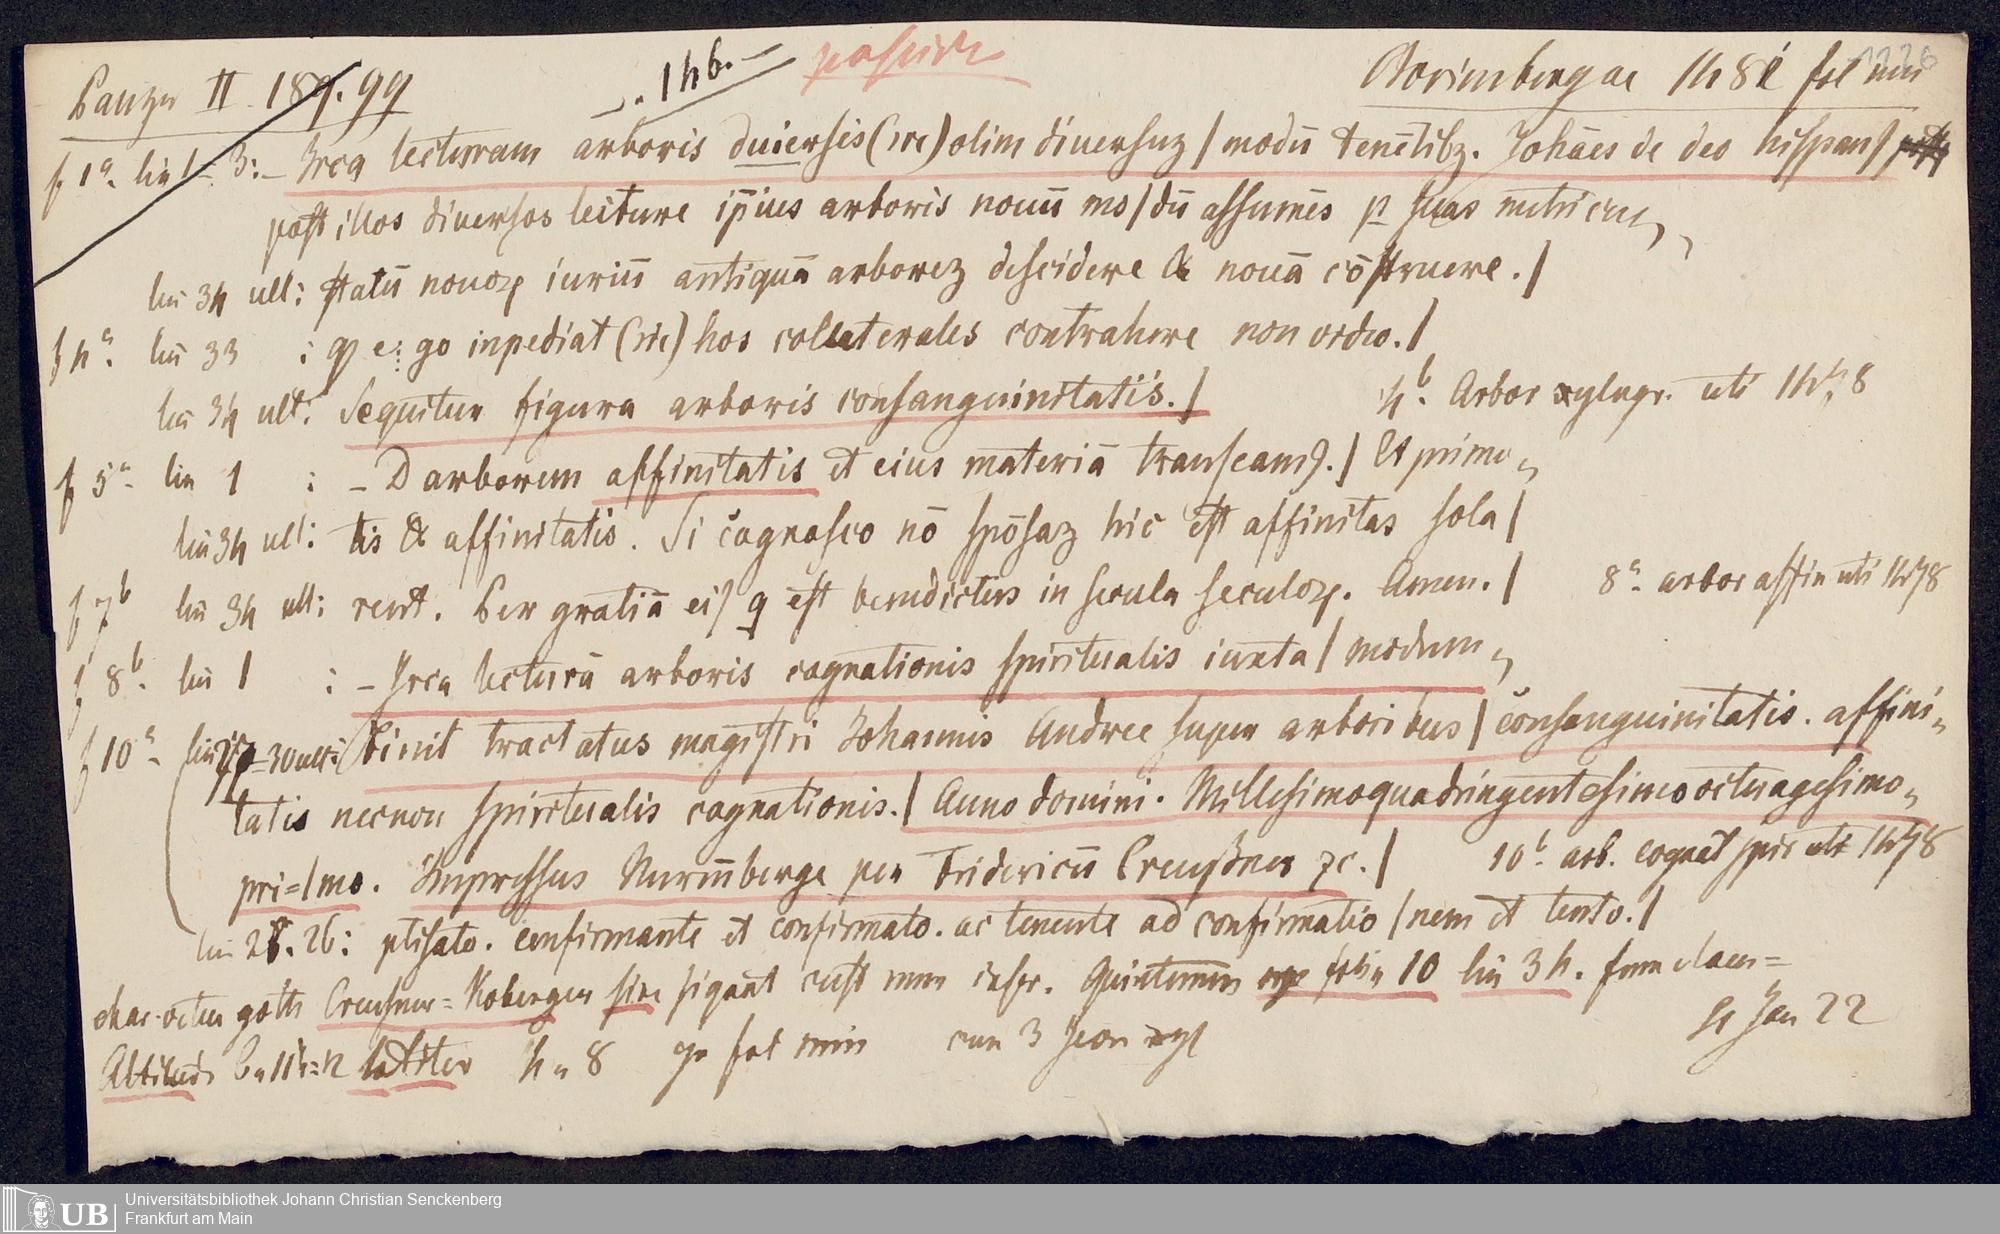 Panzer II 189. 99 146. Norimbergae 1481 fol min
f 1a. lin 1-3: – Irca lecturam arboris duiersis (sic) olim diuersuz / modū tenētibz. Johāes de deo hispan9
post illos diuersos lecture ip̄ius arboris nouū mo/dū assumēs p suas
lin 34 ult: statū nouoꝝ iuriū antiquā arborez descidere & nouā cōstruere. /
f 4a. lin 33 : ꝙ e:go inpediat (sic) hos collaterales contrahere non video. /
lin 34 ult: Sequitur figura arboris consanguinitatis. / 4b. Arbor xylogr. uti 1478
f 5a. lin 1 : – D arborem affinitatis et eius materiā transeam9. / Et primo„
lin 34 ult: tis & affinitatis. Si cognosco nō spōsaz hic est affinitas sola /
f 7b lin 34 ult: rent. Per gratiā ei9 q est benedictus in secula seculoꝝ. Amen. / 8a. arbor affin uti 1478
f 8b. lin 1 : – Irca lecturā arboris cognationis spiritualis iuxta / modum„
f 10a. lin 30 ult: Finit tractatus magistri Johannis Andree super arboribus / consanguinitatis. affini„
tatis necnon spiritualis cognationis. / Anno domini. Millesimoquadringentesimooctuagesimo„
pri=/mo. Impressus Nurm̄berge per Fridericū Creußner ꝛc. / 10b. arb. cognat spir uti 1478
lin 26: ptisato. confirmante et confirmato. ac tenente ad confirmatio / nem et tento. /
char. goth Creusner=Koberger sine signat cust num inscr. Quinternus folia 10 lin 34.
Altitud: latit 4„8 fol min cum 3 xyl 22
Universitätsbibliothek Johann Christian Senckenberg
UB Frankfurt am Main